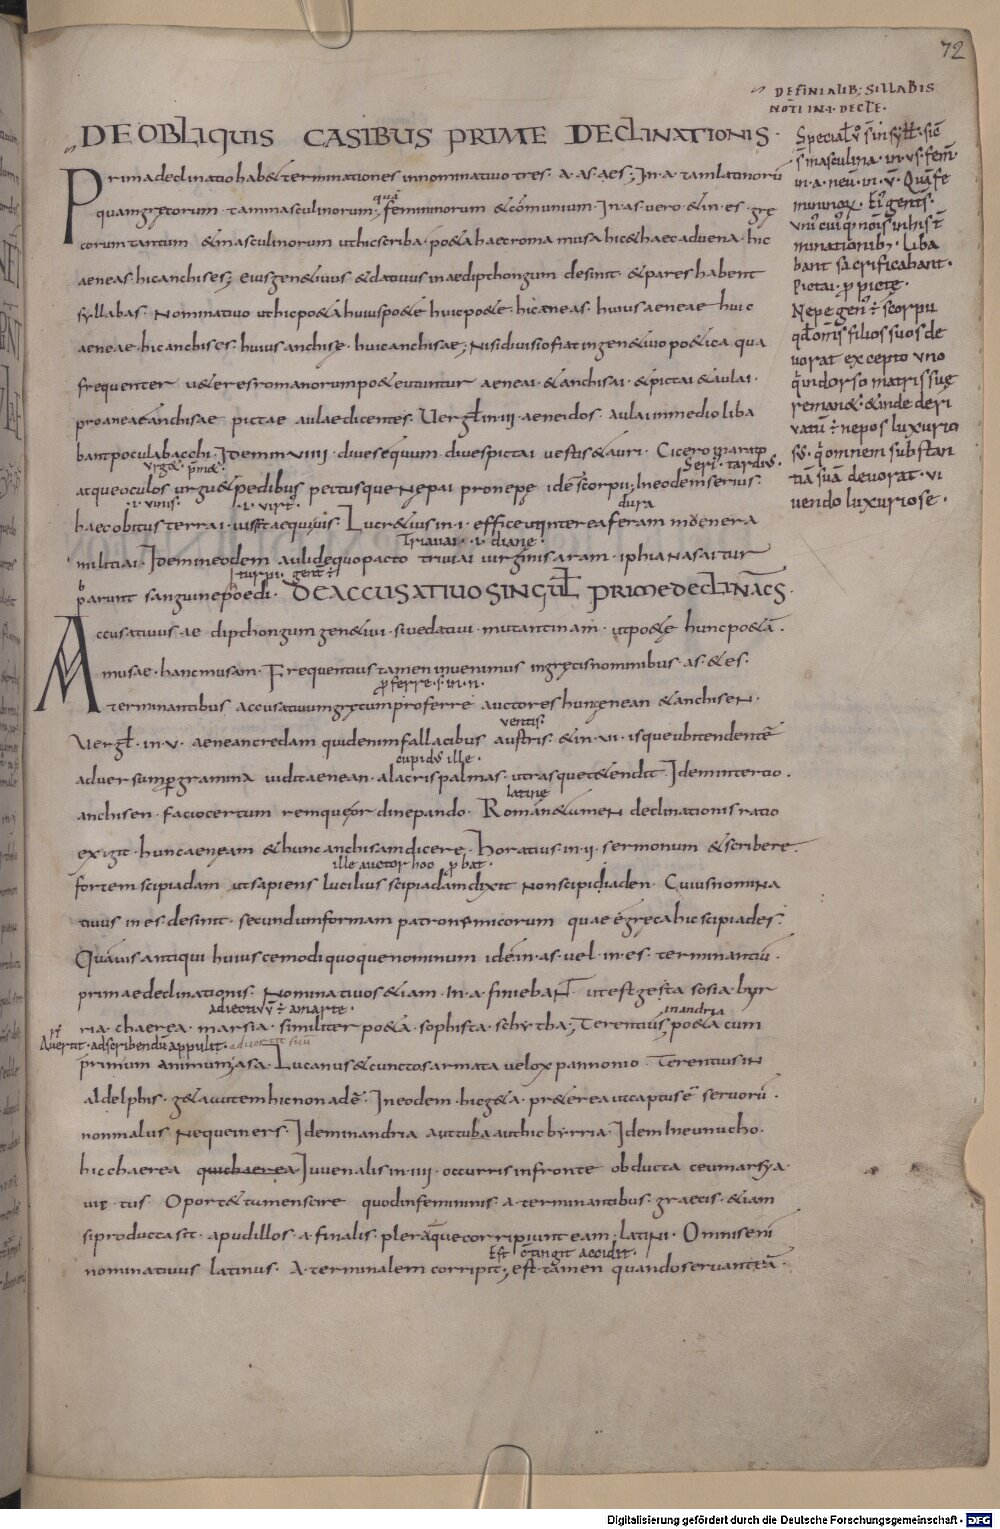 72
DEFINIALIB; SILLABIS
NOTI IN .I. DECLE.
DE OBLIQUIS CASIBUS PRIME DECLINATIONIS.
Prima declinatio hab& terminationes in nominativo tres. a. as. aes; In. a. tam latinorū
quā
quam gręcorum. tam masculinorum. femininorum &cōmunium. In. as. vero &in. es. grę
corum tantum &masculinorum ut hic scriba. po&a haec roma musa hic&haec advena. hic
aeneas. hic anchises; eius gen&ivus &dativus in ae dipthongum desinit &pares habent
syllabas. Nominativo ut hic po&a huius po&e huic po&e. hic aeneas. huius aeneae huic
aeneae. hic anchises. huius anchisę. huic anchisae; Nisi divisio fiat in gen&ivo po&ica qua
frequenter v&eres romanorum po&e utuntur aeneai. &anchisai. &pictai &aulai.
pro aneae &anchisae pictae aulae dicentes. Vergł. in. III. aeneidos. aulai in medio liba
bant pocula bacchi. Idem in VIIII. dives equum dives pictai vestis &auri. Cicero in arato
urg&. p̄m&. Seri. tardus.
atque oculos urgu& pedibus pectusque Nepai pro nepę idē scorpii; In eodem serius.
.i. unis. .i. virt. dura
haec obitus terrai. visit aequius. Lucr&ius in. I. effice ut interea fera moenera
Triviai. .i. diane.
militiai. Idem in eodem aulide quo pacto triviai virginis aram. iphianasai tur
parunt sanguine foedi. DE ACCUSATIVO SINGUŁ PRIME DECLINAC̄S.
Accusativus. ae dipthongum gen&ivi. sive dativi. mutant in am. ut po&ę hunc po&ā.
musae. hanc musam. Frequentius tamen invenimus in gręcis nominibus. as. &es.
p ferre. s. in. n.
terminantibus accusativum gręcum proferre auctores hunc enean &anchiseN.
ventis.
Vergł. in. V. aenean credam quid enim fallacibus austris. &in. XII. isque ubi tendentē
cupidus ille.
adversum per gramina vidit aenean. alacris palmas. utrasque t&endit. Idem in tertio.
latine
anchisen. facio certum remque ordine pando. Roman& umen declinationis ratio
exigit. hunc aeneam &hunc anchisam dicere. Horatius. in. II. sermonum &scribere.
ille auctor hoc p bat.
fortem scipiadam ut sapiens lucilius scipiadam dixit non scipiaden. Cuius nomina
tivus in es. desinit. secundum formam patronemicorum quae ē gręca hic scipiades.
Quāvis antiqui huiuscemodi quoque nominum idē in. as. vel. in. es. terminantiū.
primae declinationis. Nominativos &iam. In. a. finiebant ut est g&a sosia. byr
adiectivū ē a marte. in andria
ria. chaerea. marsia. similiter po&a. sophista. schytha; Terentius po&a cum
Avertit. ad scribendū appulit.
primum animum asa. Lucanus &cunctos armata velox pannonio Terentius IN
aldelphis. g&a autem hic non adē. In eodem. hic g&a. pr&erea ut captus ē servorū.
non malus neque iners. Idem in andria aut tuba aut hic byrria. Idem In eunucho.
hic chaerea qui chaerea Iuvenalis. in. IIII. occurris in fronte obducta ceu marsya.
vic tus. Oport& tumen scire quod in femininis. a. terminantibus. graecis. &iam
si producta sit. apud illos. a. finalis. pleraque corripiunt eam. latini. Omnis eni
Est c̄tingit accidit.
nominativus latinus. A. terminalem corripit; est tamen quando servant eā.
Specialr̄ s̄ in syłł. siē
s̄ masculina. in. us. femī
in. a. neū. in. ū. Quā fe
mininorū. Eł gentis.
bant sacrificabant.
Pictai. p piete.
Nepe gen' ē scorpii
qd̄ omīs filios suos de
vorat excepto uno
q̄ in dorso matris suę
reman&. &inde deri
vatū ē nepos luxurio
sus. q̄ omnem substan
tiā suā devorat. vi
vendo luxuriose.
Digitalisierung gefördert durch die Deutsche Forschungsgemeinschaft - DFG